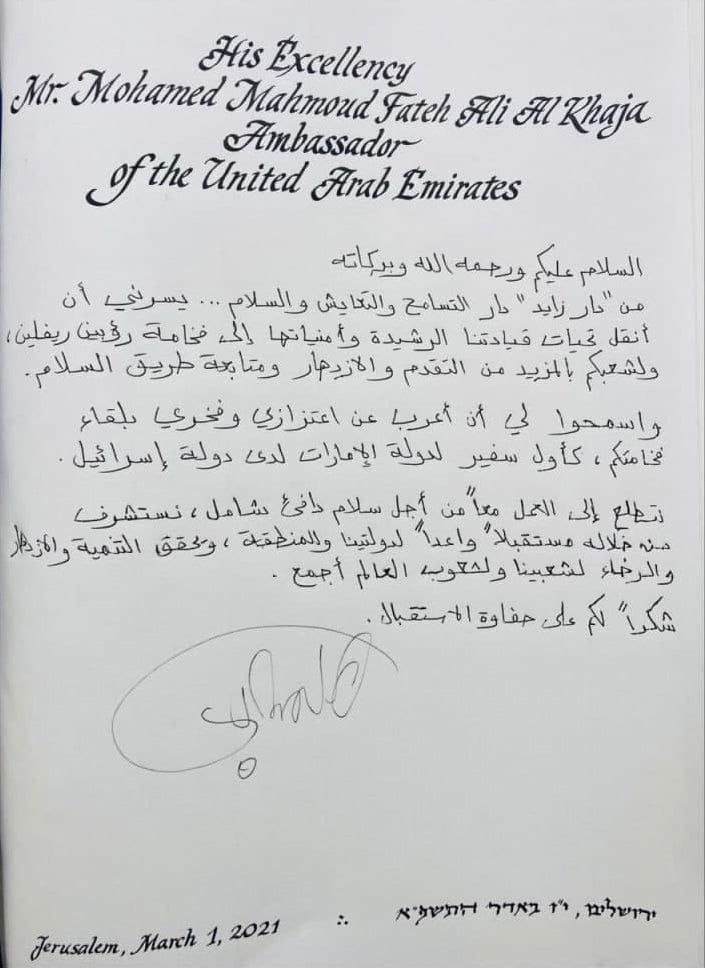 His Excellency
Mr. Mohamed Mahmoud Fateh Ali Al Khaja
Ambassador
of the United Arab Emirates
السلام عليكم ورحمه الله وبركاته
من "دار زايد" دار التسامح والتعايش والسلام ... يسرني أن
أنقل تحيات قيادتنا الرشيدة وأمنياتها إلى فخامة رؤبين ريفلين،
ولشعبكم بالمزيد من التقدم والازدهار ومتابعة طريق السلام.
واسمحوا لي أن أعرب عن اعتزازي وفخري بلقاء
فخامتكم، كأول سفير لدولة الإمارات لدى دولة إسرائيل.
نتطلع إلى العمل معاً من أجل سلام دافئ شامل، نستشرف
من خلاله مستقبلاً واعداً لدولتينا وللمنطقة، ويحقق التنمية والازدهار
والرخاء لشعبينا ولشعوب العالم أجمع.
شكراً لكم على حفاوة الاستقبال.
Jerusalem, March 1, 2021 ∴ ירושלים, י"ז באדר התשפ"א